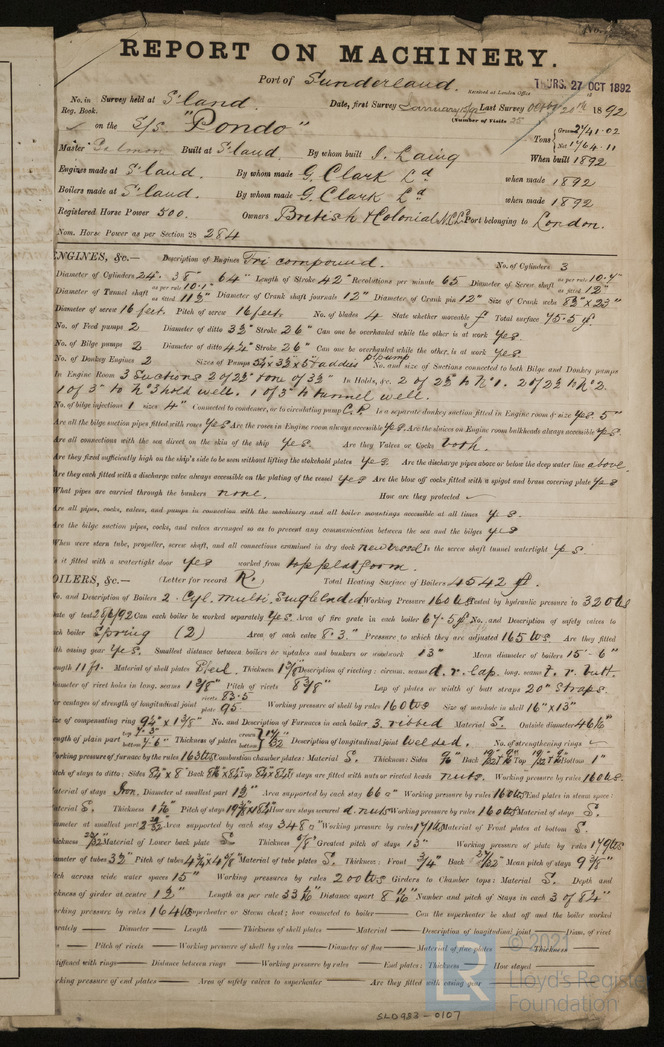 REPORT ON MACHINERY.
Port of Sunderland.
Received at London Office THURS. 27 OCT 1892
No. in Survey held at S'land. Date, first Survey January Last Survey 1892
Reg. Book. (Number of Visits 35
on the S/S. "Pondo" Tons Gross 2741.02 Net 1764.11
Master Built at S'land. By whom built J. Laing When built 1892
Engines made at S'land. By whom made G. Clark Ld when made 1892
Boilers made at S'land. By whom made G. Clark Ld when made 1892
Registered Horse Power 500. Owners British & Colonial S.N.C.Ld Port belonging to London.
Nom. Horse Power as per Section 28 284
ENGINES, &c.— Description of Engines Tri compound. No. of Cylinders 3
Diameter of Cylinders 24" 38" 64" Length of Stroke 42" Revolutions per minute 65 Diameter of Screw shaft as per rule 10.7" as fitted 12"
Diameter of Tunnel shaft as per rule 10.1" as fitted 11½" Diameter of Crank shaft journals 12" Diameter of Crank pin 12" Size of Crank webs 8½" x 23"
Diameter of screw 16 feet. Pitch of screw 16 feet. No. of blades 4 State whether moveable Total surface 75.5
No. of Feed pumps 2 Diameter of ditto 3½" Stroke 26" Can one be overhauled while the other is at work Yes.
No. of Bilge pumps 2 Diameter of ditto 4½" Stroke 26" Can one be overhauled while the other is at work Yes
No. of Donkey Engines 2 Sizes of Pumps No. and size of Suctions connected to both Bilge and Donkey pumps
In Engine Room 3 Suctions 2 of 2½" & one of 3½" In Holds, &c. 2 of 2½" to No 1. 2 of 2½" to No 2.
1 of 3" to No 3 hold well. 1 of 3" to tunnel well.
No. of bilge injections 1 sizes 4" Connected to condenser, or to circulating pump C.P. Is a separate donkey suction fitted in Engine room & size Yes. 5"
Are all the bilge suction pipes fitted with roses Yes Are the roses in Engine room always accessible Yes. Are the sluices on Engine room bulkheads always accessible Yes
Are all connections with the sea direct on the skin of the ship Yes. Are they Valves or Cocks both.
Are they fixed sufficiently high on the ship's side to be seen without lifting the stokehold plates Yes. Are the discharge pipes above or below the deep water line above.
Are they each fitted with a discharge valve always accessible on the plating of the vessel Yes Are the blow off cocks fitted with a spigot and brass covering plate Yes
What pipes are carried through the bunkers none. How are they protected
Are all pipes, cocks, valves, and pumps in connection with the machinery and all boiler mountings accessible at all times Yes.
Are the bilge suction pipes, cocks, and valves arranged so as to prevent any communication between the sea and the bilges Yes
When were stern tube, propeller, screw shaft, and all connections examined in dry dock new vessel Is the screw shaft tunnel watertight Yes.
is it fitted with a watertight door Yes worked from top platform.
BOILERS, &c.— (Letter for record R.) Total Heating Surface of Boilers 4542
No. and Description of Boilers 2. Cyl. Multi. Single ended Working Pressure 160 lbs Tested by hydraulic pressure to 320 lbs
Date of test Can each boiler be worked separately Yes. Area of fire grate in each boiler 67.5 No. and Description of safety valves to
each boiler Spring (2) Area of each valve 8.3." Pressure to which they are adjusted 165 lbs. Are they fitted
with easing gear Yes. Smallest distance between boilers or uptakes and bunkers or woodwork 13" Mean diameter of boilers 15'-6"
Length 11 ft. Material of shell plates Steel. Thickness Description of riveting: circum. seams d.r. lap. long. seams t.r. butt.
Diameter of rivet holes in long. seams Pitch of rivets 8⅜" Lap of plates or width of butt straps 20" straps.
Per centages of strength of longitudinal joint rivets 83.5 plate 95. Working pressure of shell by rules 160 lbs Size of manhole in shell 16" x 13"
Size of compensating ring No. and Description of Furnaces in each boiler 3. ribbed Material S. Outside diameter
Length of plain part Thickness of plates Description of longitudinal joint welded. No. of strengthening rings
Working pressure of furnace by the rules 163 lbs Combustion chamber plates: Material S. Thickness: Sides Back Top Bottom 1"
Pitch of stays to ditto: Sides Back Top If stays are fitted with nuts or riveted heads nuts. Working pressure by rules 160 lbs.
Material of stays Iron. Diameter at smallest part Area supported by each stay 66 Working pressure by rules 160 lbs End plates in steam space:
Material S. Thickness Pitch of stays How are stays secured d. nuts Working pressure by rules 160 lbs Material of stays S.
Diameter at smallest part Area supported by each stay 348 Working pressure by rules 171 lbs Material of Front plates at bottom S.
Thickness Material of Lower back plate S Thickness Greatest pitch of stays 13" Working pressure of plate by rules 179 lbs
Diameter of tubes 3½" Pitch of tubes Material of tube plates S. Thickness: Front ¾" Back Mean pitch of stays
Pitch across wide water spaces 15" Working pressures by rules 200 lbs Girders to Chamber tops: Material S. Depth and
thickness of girder at centre Length as per rule Distance apart Number and pitch of Stays in each 3 of 8¼"
Working pressure by rules 164 lbs Superheater or Steam chest; how connected to boiler Can the superheater be shut off and the boiler worked
separately Diameter Length Thickness of shell plates Material Description of longitudinal joint Diam. of rivet
Pitch of rivets Working pressure of shell by rules Diameter of flue Material of flue plates Thickness
stiffened with rings Distance between rings Working pressure by rules End plates: Thickness How stayed
Working pressure of end plates Area of safety valves to superheater Are they fitted with easing gear
SLD983-0107
© 2021
Lloyd's Register
Foundation
LR